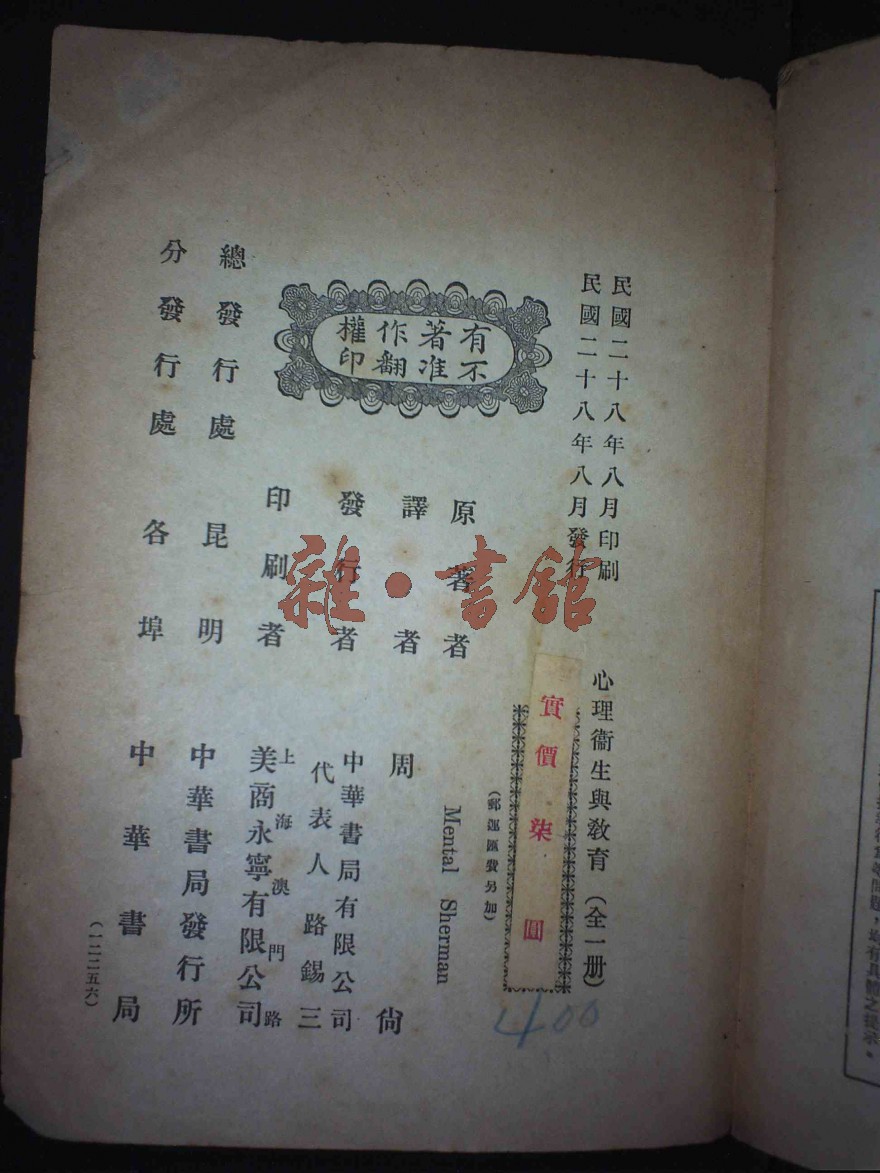 民國二十八年八月印刷
民國二十八年八月發行
心理衞生與敎育（全一册）
實價柒圓
（郵運匯費另加）
400
有著作權
不准翻印
原著者 Mental Sherman
譯者 周尙
發行者 中華書局有限公司
代表人路錫三
印刷者 上海澳門路
美商永寧有限公司
總發行處 昆明 中華書局發行所
分發行處 各埠 中華書局
（一二二五六）
雜·書館
，均有具體之提示。